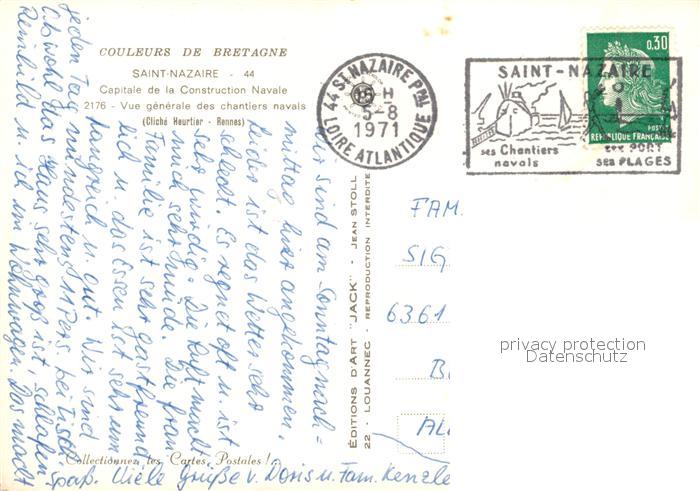 COULEURS DE BRETAGNE
SAINT-NAZAIRE - 44
Capitale de la Construction Navale
2176 - Vue générale des chantiers navals
(Cliché Heurtier - Rennes)
44 ST NAZAIRE PPAL
H
5-8
1971
LOIRE ATLANTIQUE
SAINT-NAZAIRE
ses Chantiers
navals
son PORT
ses PLAGES
0,30
POSTES
REPUBLIQUE FRANÇAISE
Wir sind am Sonntagnach=
mittag hier angekommen.
Leider ist das Wetter sehr
schlecht. Es regnet oft u. ist
sehr windig. Die Luft macht
mich sehr müde. Die franz.
Familie ist sehr gastfreund=
lich u. das Essen ist sehr um=
fangreich u. gut. Wir sind
jeden Tag mindestens 11 Pers. bei Tisch
Obwohl das Haus sehr groß ist, schlafen
Reinhild u. ich im Wohnwagen. Das macht
Spaß. Viele Grüße v. Doris u. Fam. Kenzle
Collectionnez les Cartes Postales !
ÉDITIONS D'ART "JACK" - JEAN STOLL
22 - LOUANNEC - REPRODUCTION INTERDITE
FAM.
SIG
6361
B
AL
privacy protection
Datenschutz